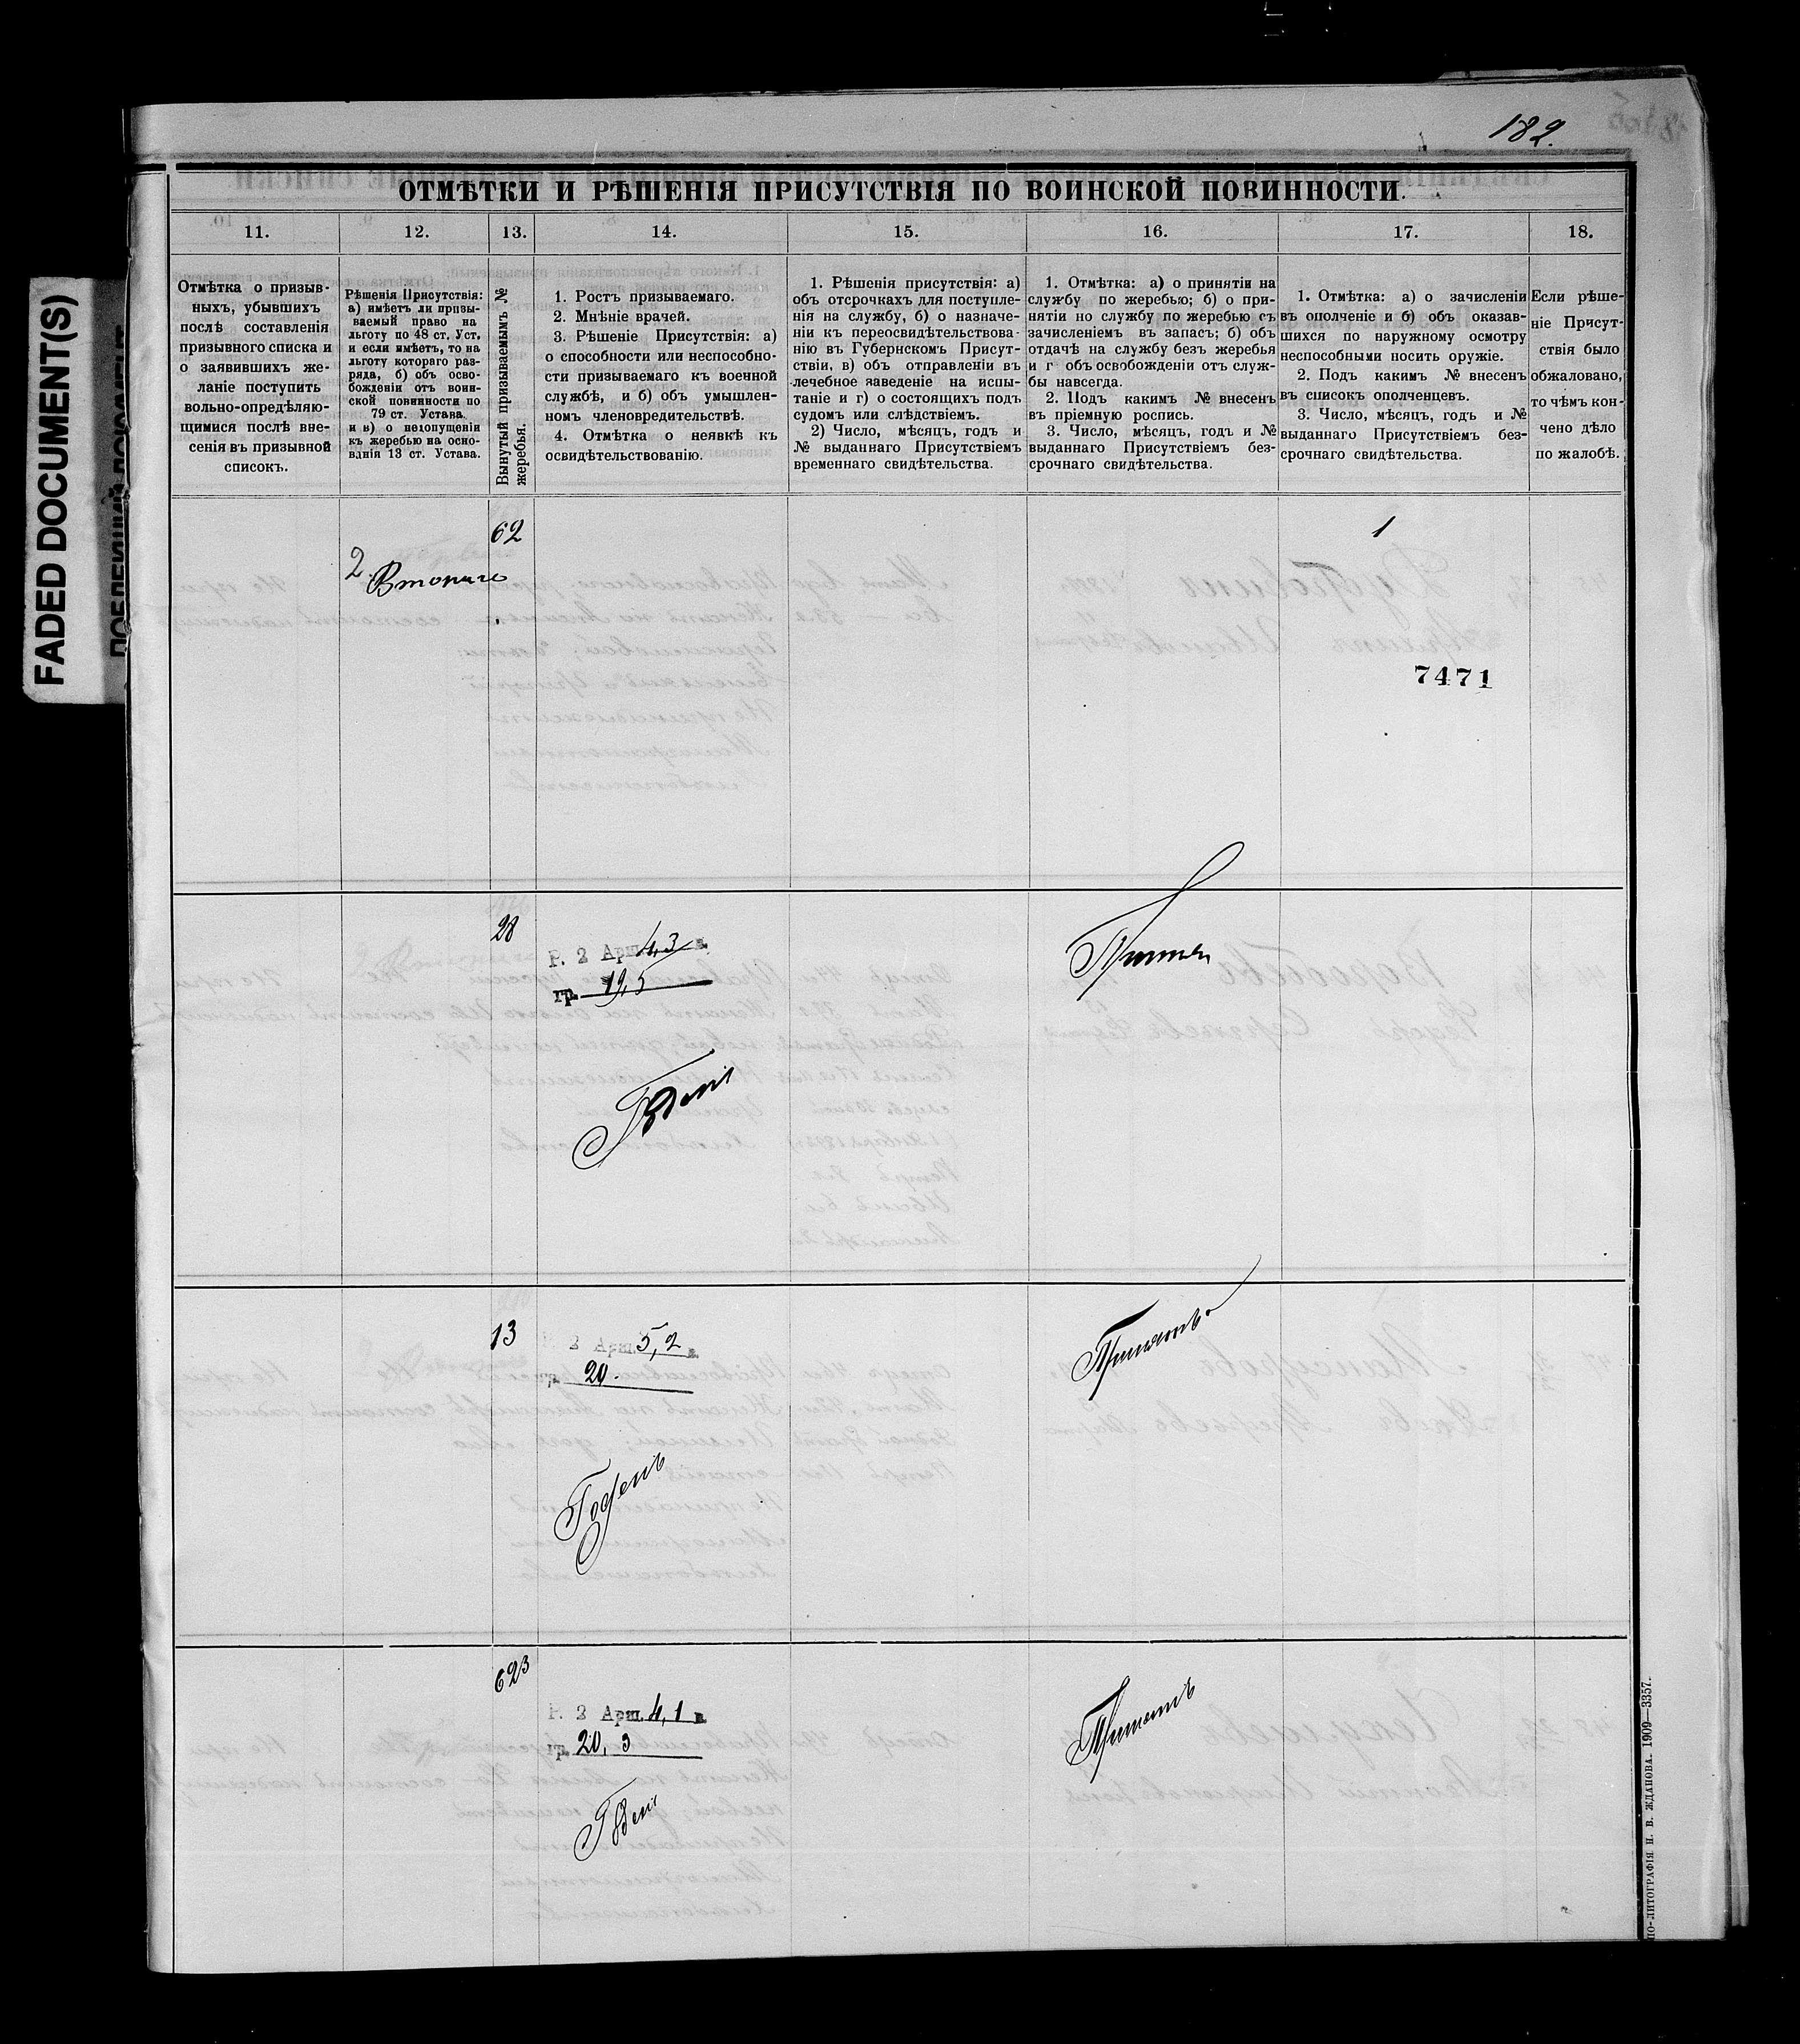 182.
FADED DOCUMENT(S)
ОТМѢТКИ И РѢШЕНІЯ ПРИСУТСТВІЯ ПО ВОИНСКОЙ ПОВИННОСТИ.
11.
12.
13.
14.
15.
16.
17.
18.
Отмѣтка о призыв-
ныхъ, убывшихъ
послѣ составленія
призывного списка и
о заявившихъ же-
ланіе поступить
вольно-опредѣляю-
щимися послѣ вне-
сенія въ призывной
списокъ.
Рѣшенія Присутствія:
а) имѣетъ ли призы-
ваемый право на
льготу по 48 ст. Уст.
и если имѣетъ, то на
льготу котораго раз-
ряда, б) объ осво-
божденіи отъ воин-
ской повинности по
79 ст. Устава
и в) о недопущеніи
къ жеребью на осно-
ваніи 13 ст. Устава.
Вынутый призываемымъ №
жеребья.
1. Ростъ призываемаго.
2. Мнѣніе врачей.
3. Рѣшеніе Присутствія: а)
о способности или неспособно-
сти призываемаго къ военной
службѣ, и б) объ умышлен-
номъ членовредительствѣ.
4. Отмѣтка о неявкѣ къ
освидѣтельствованію.
1. Рѣшенія присутствія: а)
объ отсрочкахъ для поступле-
нія на службу, б) о назначе-
ніи къ переосвидѣтельствова-
нію въ Губернскомъ Присут-
ствіи, в) объ отправленіи въ
лечебное заведеніе на испы-
таніе и г) о состоящихъ подъ
судомъ или слѣдствіемъ.
2) Число, мѣсяцъ, годъ и
№ выданнаго Присутствіемъ
временнаго свидѣтельства.
1. Отмѣтка: а) о принятіи на
службу по жеребью; б) о при-
нятіи но службу по жеребью съ
зачисленіемъ въ запасъ; б) объ
отдачѣ на службу безъ жеребья
и г объ освобожденіи отъ служ-
бы навсегда.
2. Подъ какимъ № внесенъ
въ пріемную роспись.
3. Число, мѣсяцъ, годъ и №
выданнаго Присутствіемъ без-
срочнаго свидѣтельства.
1. Отмѣтка: а) о зачисленіи
въ ополченіе и б) объ оказав-
шихся по наружному осмотру
неспособными носить оружіе.
2. Подъ какимъ № внесенъ
въ списокъ ополченцевъ.
3. Число, мѣсяцъ, годъ и №
выданнаго Присутствіемъ без-
срочнаго свидѣтельства.
Если рѣше-
ніе Присут-
ствія было
обжаловано,
то чѣмъ кон-
чено дѣло
по жалобѣ.
62
1
2.
7471
28
Р. 2 Арш. 4,3 в.
гр. 19,5
Годенъ
Принятъ
13
2 Арш. 5,2 в.
гр. 20.
Годенъ
Принятъ
623
Р. 2 Арш. 4,1 в.
гр. 20, 3
Годенъ
Принятъ
ПО-ЛИТОГРАФІЯ Н. В. ЖДАНОВА. 1909—3357.